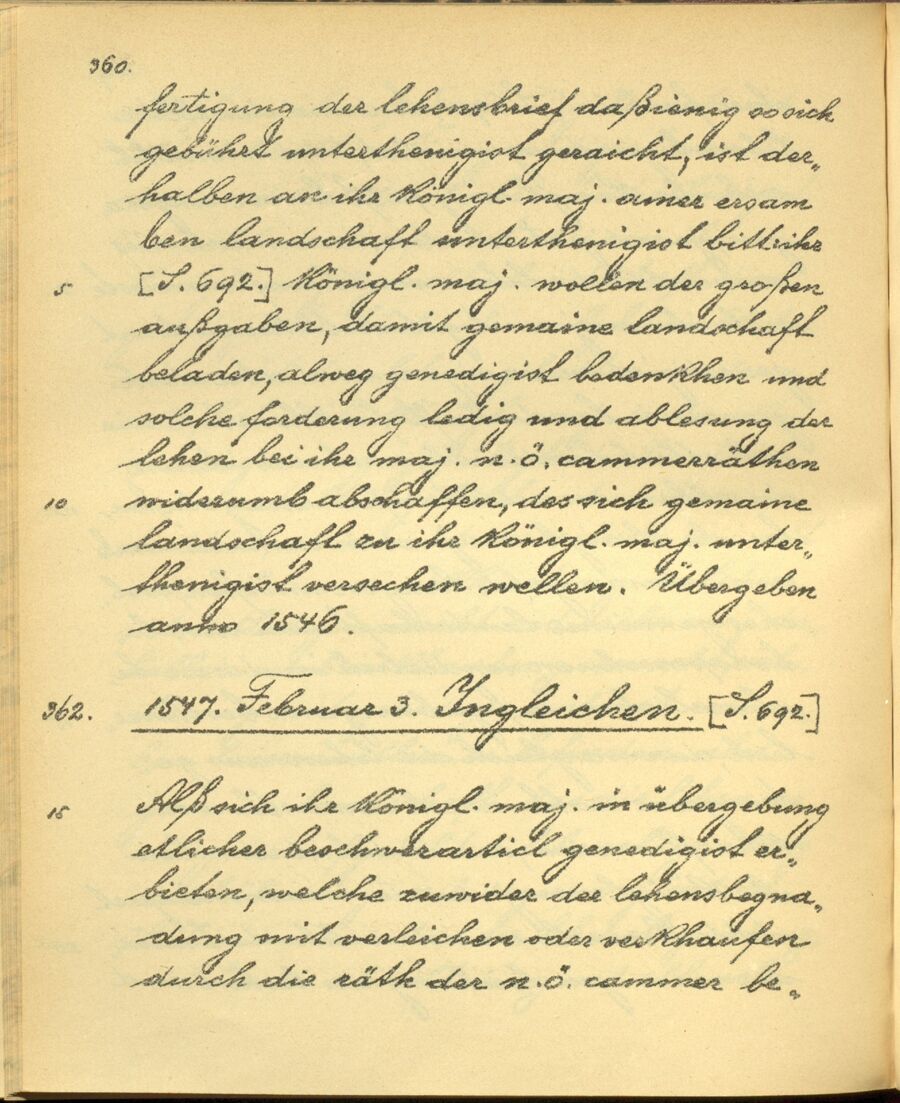 360.
fertigung der lehensbrief daßienig so sich
gebührt unterthenigist geraicht, ist der„
halben an ihr königl. maj. ainer ersam
ben landschaft unterthenigist bitt: ihr
5 [S. 692.] königl. maj. wollen der großen
außgaben, damit gemaine landschaft
beladen, alweg genedigist bedenkhen und
solche forderung ledig und ablesung der
lehen bei ihr maj. n. ö. cammerräthen
10 widerumb abschaffen, des sich gemaine
landschaft zu ihr königl. maj. unter„
thenigist versechen wellen. Übergeben
anno 1546.
362. 1547. Februar 3. Ingleichen. [S. 692.]
15 Alß sich ihr königl. maj. in übergebung
etlicher beschwerarticl genedigist er„
bieten, welche zuwider der lehensbegna„
dung mit verleichen oder verkhaufen
durch die räth der n. ö. cammer be„